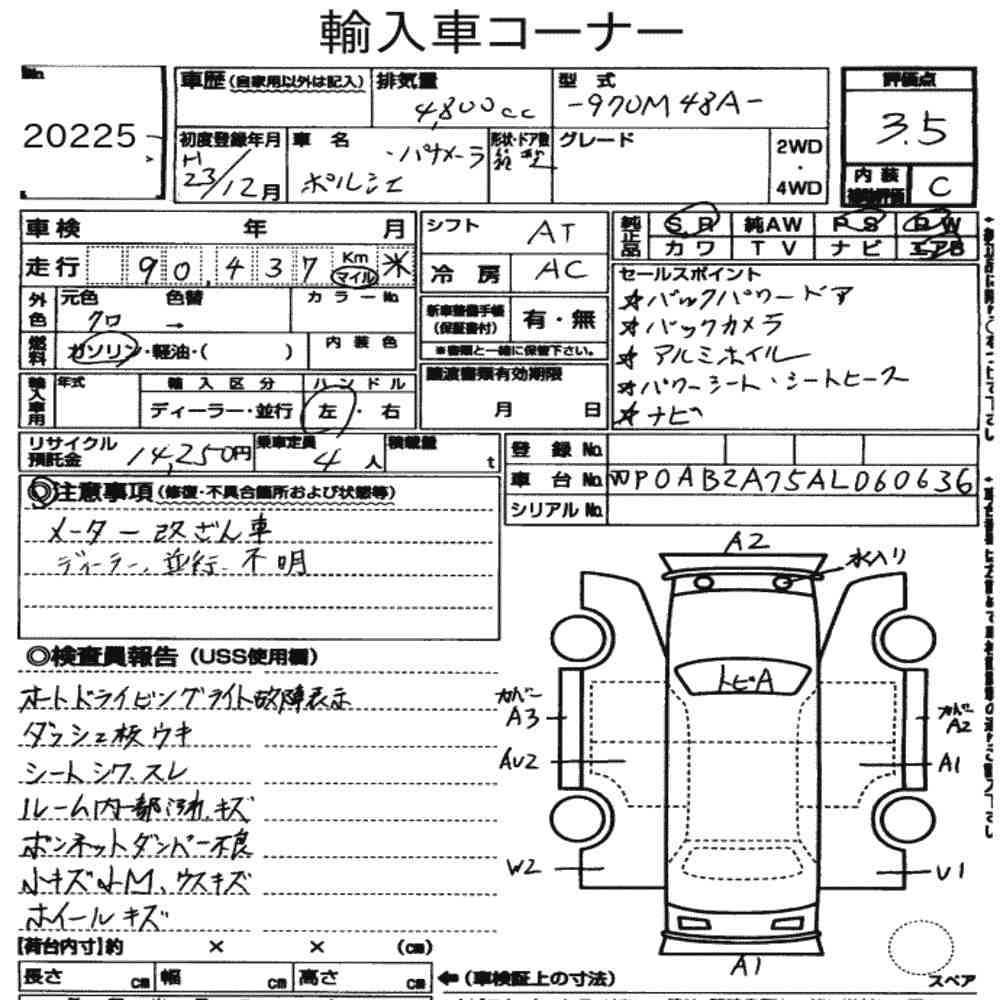 輸入車コーナー
No.
20225
車歴(自家用以外は記入)
排気量
4,800cc
型式
-970M48A-
評価点
3.5
初度登録年月
H
23/12月
車名
・パナメーラ
ポルシェ
形状・ドア数
グレード
2WD
・
4WD
内装
補助評価
C
車検 年 月
シフト
AT
純正品
SR
純AW
PS
PW
カワ
TV
ナビ
エアB
走行
90,437
Km
マイル
*
冷房
AC
セールスポイント
☆バックパワードア
☆バックカメラ
☆アルミホイル
☆パワーシート・シートヒース
☆ナビ
外色
元色
色替
カラーNo.
クロ →
新車整備手帳
(保証書付)
有・無
※書類と一緒に保管下さい。
燃料
ガソリン・軽油・( )
内装色
譲渡書類有効期限
月 日
輸入車用
年式
輸入区分
ハンドル
ディーラー・並行
左・右
リサイクル
預託金
14,250円
乗車定員
4人
積載量
t
登録No.
車台No.
WP0AB2A75AL060636
シリアルNo.
◎注意事項(修復・不具合箇所および状態等)
メーター改ざん車
ディーラー、並行、不明
◎検査員報告(USS使用欄)
オートドライビングライト故障表示
ダッシュ板ウキ
シートシワ、スレ
ルーム内一部汚れ、キズ
ボンネットダンパー不良
小キズ小M、ウスキズ
ホイールキズ
A2
水入り
トビA
カバー
A3
カバー
A2
AU2
A1
W2
U1
A1
スペア
【荷台内寸】約 × × (cm)
長さ cm
幅 cm
高さ cm
←(車検証上の寸法)